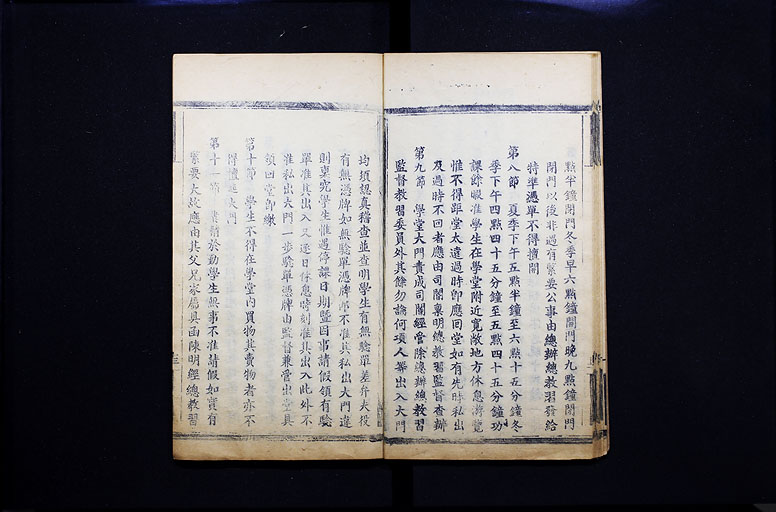 點半鐘閉門冬季早六點鐘開門晚九點鐘閉門
閉門以後非遇有緊要公事由總辦總教習發給
特準憑單不得擅開
第八節 夏季下午五點半鐘至六點十五分鐘冬
季下午四點四十五分鐘至五點四十五分鐘功
課餘暇准學生在學堂附近寬敞地方休息游覽
惟不得距堂太遠過時即應回堂如有先時私出
及過時不回者應由司閽稟明總教習監督查辦
第九節 學堂大門責成司閽經管除總辦總教習
監督教習委員外其餘勿論何項人等出入大門
均須認真稽查並查明學生有無驗單差弁夫役
有無憑牌如無驗單憑牌即不准其私出大門違
則稟究學生惟遇停課日期暨因事請假領有驗
單准其出入又逐日休息時刻准其出入此外不
准私出大門一步驗單憑牌由監督兼管出堂具
領回堂即繳
第十節 學生不得在學堂內買物其賣物者亦不
得擅進大門
第十一節 業精於勤學生無事不准請假如實有
緊要大故應由其父兄家屬具函陳明經總教習